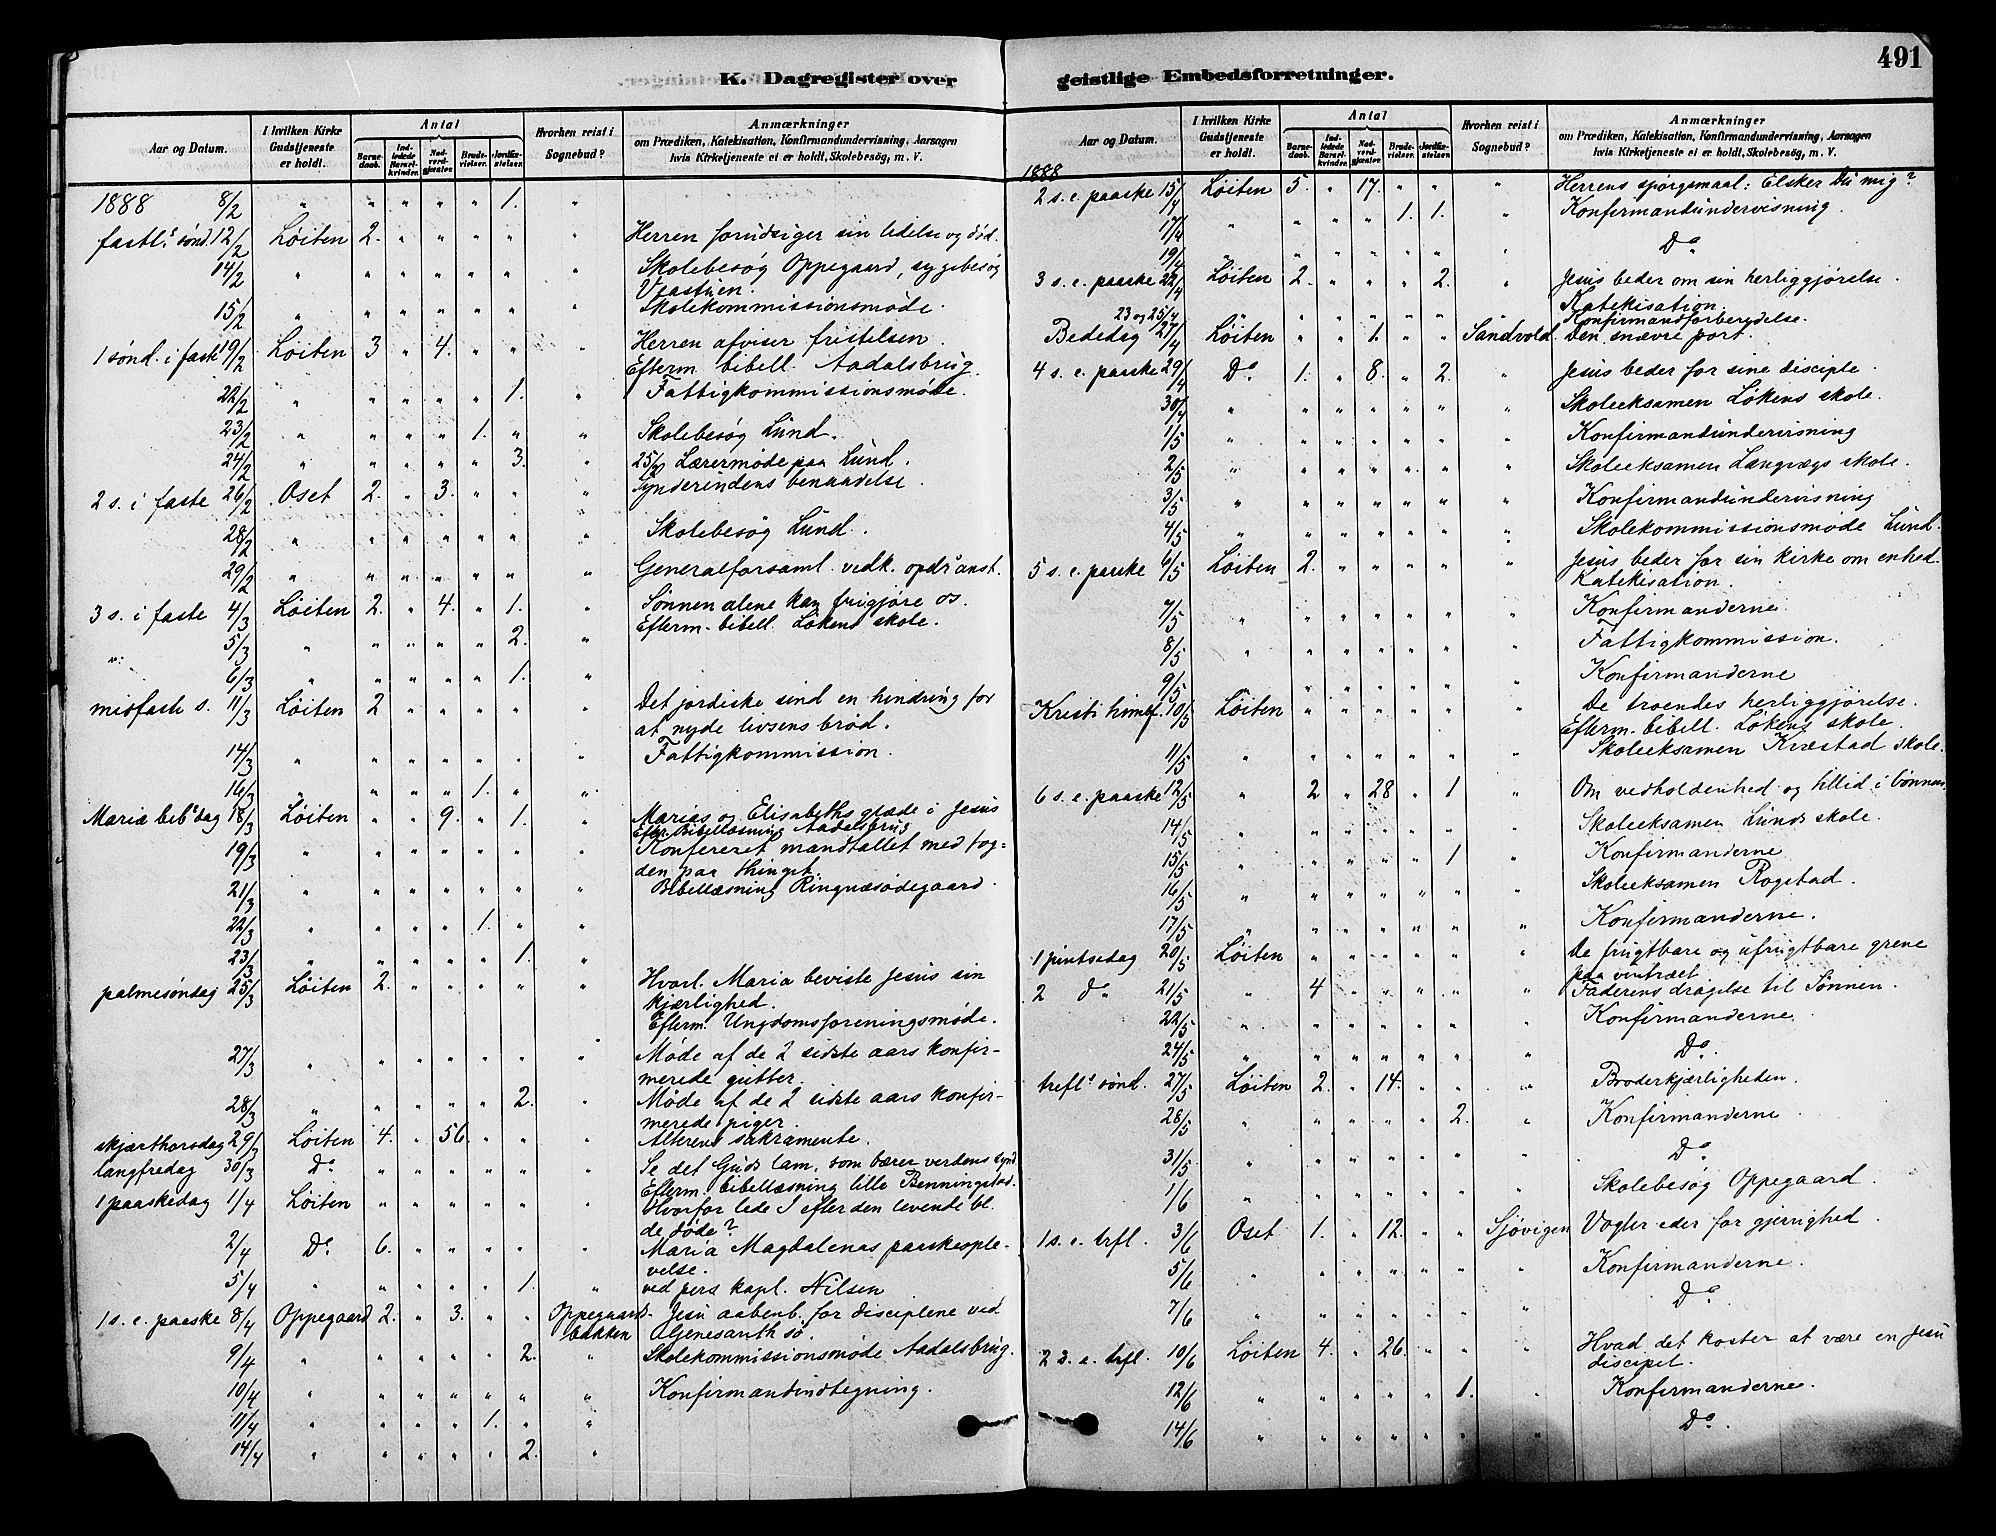 491
K. Dagregister over
Aar og Datum. | I hvilken Kirke Gudstjeneste er holdt. | Antal | Barnedaab. | Indledede Barselkvinder. | Nadverdgjæster. | Brudevielser. | Jordfæstelser. | Hvorhen reist i Sognebud? | Anmærkninger om Prædiken, Katekisation, Konfirmandundervisning, Aarsagen hvis Kirketjeneste ei er holdt, Skolebesög, m. V.
1888 8/2 " " " " " 1. "
fastl.s sönd. 12/2 Löiten 2. " " " " " Herren forudsiger sin lidelse og död.
14/2 " " " " " " " Skolebesög Oppegaard, sygebesög
15/2 " " " " " " " Skolekommissionsmöde.
1 sönd. i faste 19/2 Löiten 3 " 4. " " " Herren afviser fristelsen.
Efterm. bibell. Aadalsbrug.
22/2 " " " " " 1. " Fattigkommissionsmöde.
23/2 " " " " 1. " " Skolebesög Lund.
24/2 " " " " " 3. " 25/2 Lærermöde paa Lund.
2 s. i faste 26/2 Oset 2. " 3. " " " Synderindens benaadelse.
28/2 " " " " " " " Skolebesög Lund.
29/2 " " " " " " " Generalforsaml. vedk. opdr. anst.
3 s. i faste 4/3 Löiten 2. " 4. " 1. " Sönnen alene kan frigjöre os.
Efterm. bibell. Lökens skole.
5/3 " " " " " 2. "
6/3 " " " " " 1. "
midfaste s. 11/3 Löiten 2 " " " " " Det jordiske sind en hindring for
at nyde livsens bröd.
14/3 " " " " " " " Fattigkommission.
16/3 " " " " 1. " "
Mariæ beb.s dag 18/3 Löiten " " 9. " 1. " Marias og Elisabeths glæde i Jesus
Efterm. Bibellæsning Aadalsbrug
19/3 " " " " " " " Konfereret mandtallet med fog-
den paa thinget.
21/3 " " " " " " " Bibellæsning Ringnæsödegaard.
22/3 " " " " 1. " "
23/3 " " " " " 1. "
palmesöndag 25/3 Löiten 2. " " " " " Hvorl. Maria beviste Jesus sin
kjærlighed.
Efterm. Ungdomsforeningsmöde.
27/3 " " " " " " " Möde af de 2 sidste aars konfir-
merede gutter.
28/3 " " " " " 2. " Möde af de 2 sidste aars konfir-
merede piger.
skjærthorsdag 29/3 Löiten 4. " 56. " " " Alterens sakramente.
langfredag 30/3 Do " " " " " " Se det Guds lam, som bærer verdens synd
Efterm. bibellæsning lille Benningstad.
1 paaskedag 1/4 Löiten " " " " " " Hvorfor lede I efter den levende bl.
de döde?
2/4 Do 6. " " " " " Maria Magdalenas paaskeople-
velse.
5/4 " " " " " 1. " ved pers. kapl. Nilsen
1 s. e. paaske 8/4 Oppegaard 2. " 3. " " Oppegaards- Jesu aabenb. for disciplene ved
bakken Genesareth sö.
9/4 " " " " " 2. " Skolekommissionsmöde Aadalsbrug.
10/4 " " " " " " " Konfirmandindtegning.
11/4 " " " " 1. " "
14/4 " " " " " 2. "
geistlige Embedsforretninger.
Aar og Datum. | I hvilken Kirke Gudstjeneste er holdt. | Antal | Barnedaab. | Indledede Barselkvinder. | Nadverdgjæster. | Brudevielser. | Jordfæstelser. | Hvorhen reist i Sognebud? | Anmærkninger om Prædiken, Katekisation, Konfirmandundervisning, Aarsagen hvis Kirketjeneste ei er holdt, Skolebesög, m. V.
1888
2 s. e. paaske 15/4 Löiten 5. " 17. " " " Herrens spörgsmaal: Elsker Du mig?
17/4 " " " " 1. 1. " Konfirmandundervisning.
19/4 " " " " " " " Do
3 s. e. paaske 22/4 Löiten 2. " " " 2. " Jesus beder om sin herliggjörelse.
Katekisation.
23 og 25/4 " " " " " " " Konfirmandforberedelse.
Bededag 27/4 Löiten " " 1. " " Sandvold. Den snævre port.
4 s. e. paaske 29/4 Do 1. " 8. " 2. " Jesus beder for sine disciple.
30/4 " " " " " " " Skoleeksamen Lökens skole.
1/5 " " " " " " " Konfirmandundervisning
2/5 " " " " " " " Skoleeksamen Langvægs skole.
3/5 " " " " " " " Konfirmandundervisning
4/5 " " " " " " " Skolekommissionsmöde Lund.
5 s. e. paaske 6/5 Löiten 2. " " " " " Jesus beder for sin kirke om enhed.
Katekisation.
7/5 " " " " " " " Konfirmanderne
8/5 " " " " " " " Fattigkommission.
9/5 " " " " " " " Konfirmanderne
Kristi himlf. 10/5 Löiten " " " " " " De troendes herliggjörelse.
Efterm. bibell. Lökens skole.
11/5 " " " " " " " Skoleeksamen Knæstad skole.
6 s. e. paaske 12/5 " 2 " 28 " 1 " Om vedholdenhed og tillid i bönnen
14/5 " " " " " " " Skoleeksamen Lunds skole.
15/5 " " " " " 1 " Konfirmanderne
16/5 " " " " " " " Skoleeksamen Rogstad.
17/5 " " " " " " " Konfirmanderne.
1 pintsedag 20/5 Löiten " " " " " " De frugtbare og ufrugtbare grene
paa vintræet
2 Do 21/5 " 4 " " " " " Faderens dragelse til Sönnen.
22/5 " " " " " " " Konfirmanderne
24/5 " " " " " " " Do
trefl.s sönd. 27/5 Löiten 2. " 14. " " " Broderkjærligheden.
28/5 " " " " " 2. " Konfirmanderne
31/5 " " " " " " " Do
1/6 " " " " " " " Skolebesög Oppegaard.
1 s. e. trfl. 3/6 Oset 1. " 12. " " Sjövigen Vogter eder for gjerrighed.
5/6 " " " " " " " Konfirmanderne.
7/6 " " " " " " " Do
2 s. e. trfl. 10/6 Löiten 4. " 26. " " " Hvad det koster at være en Jesu
discipel.
12/6 " " " " " 1. " Konfirmanderne.
14/6 " " " " " " " Do